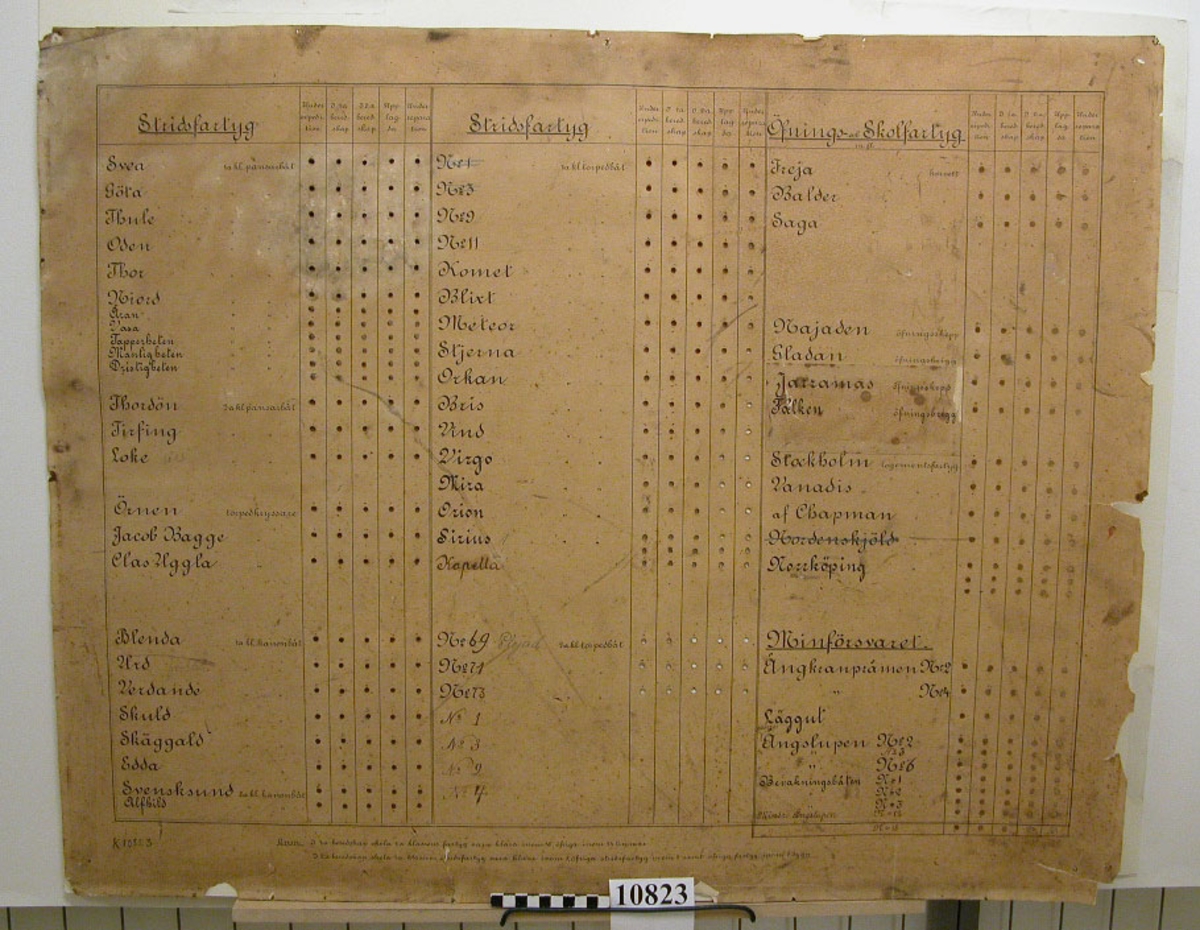 Stridsfartyg
Under expedition
I 1:a beredskap
I 2:a beredskap
Upplagda
Under reparation
Svea 1:a kl pansarbåt
Göta
Thule
Oden
Thor
Niord
Äran
Vasa
Tapperheten
Manligheten
Dristigheten
Thordön 3:a kl pansarbåt
Tirfing
Loke
Örnen torpedkryssare
Jacob Bagge
Clas Uggla
Blenda 1:a kl. kanonbåt
Urd
Verdande
Skuld
Skäggald
Edda
Svensksund 2:a kl. kanonbåt
Alfhild
Stridsfartyg
Under expedition
I 1:a beredskap
I 2:a beredskap
Upplagda
Under reparation
No 1 1:a kl torpedbåt
No 3
No 9
No 11
Komet
Blixt
Meteor
Stjerna
Orkan
Bris
Vind
Virgo
Mira
Orion
Sirius
Kapella
No 69 Plejad 2:a kl torpedbåt
No 71
No 73
No 1
No 3
No 9
No 4
Öfnings- o. Skolfartyg
m. fl.
Under expedition
I 1:a beredskap
I 2:a beredskap
Upplagda
Under reparation
Freja korvett
Balder
Saga
Najaden öfningsskepp
Gladan öfningsbrigg
Jarramas öfningsskepp
Falken öfningsbrigg
Stockholm logementsfartyg
Vanadis
af Chapman
Nordenskjöld
Norrköping
Minförsvaret.
Ångkranpråmen No 2
" No 4
Läggut
Ångslupen No 2
No 3
" No 6
Bevakningsbåten No 1
No 2
No 3
Mindre Ångslupen
K 10823
10823